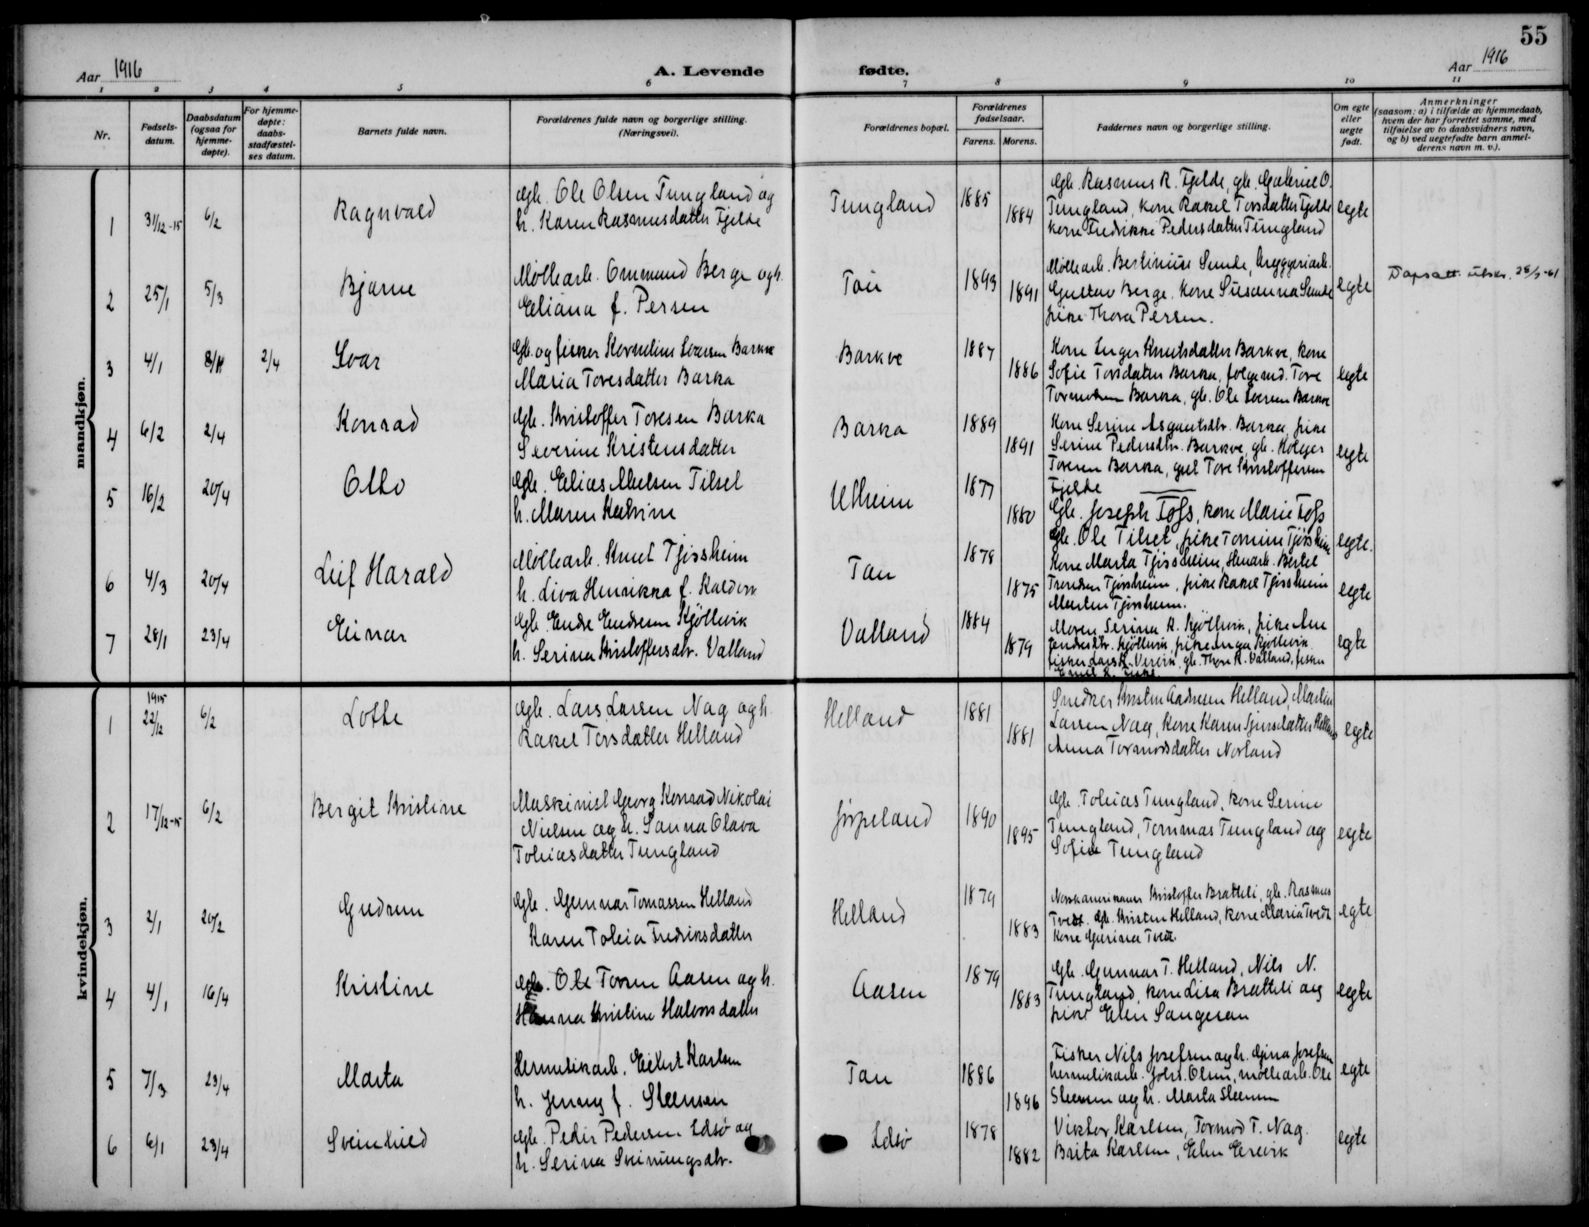 55
Aar 1916
A. Levende
fødte.
Aar 1916
1 2 3 4 5 6 7 8 9 10 11
Nr.
Fødsels-
datum.
Daabsdatum
(ogsaa for
hjemme-
døpte).
For hjemme-
døpte:
daabs-
stadfæstel-
ses datum.
Barnets fulde navn.
Forældrenes fulde navn og borgerlige stilling.
(Næringsvei).
Forældrenes bopæl.
Forældrenes
fødselsaar.
Farens. Morens.
Faddernes navn og borgerlige stilling.
Om egte
eller
uegte
født.
Anmerkninger
(saasom: a) i tilfælde av hjemmedaab,
hvem der har forrettet samme, med
tilføielse av to daabsvidners navn,
og b) ved uegtefødte barn anmel-
derens navn m. v.).
mandkjøn.
1 31/12-15 6/2 Ragnvald
Gbr. Ole Olsen Tungland og
h. Karen Rasmusdatter Fjelde
Tungland 1885 1884
Gbr. Rasmus R. Fjelde, gbr. Gabriel O.
Tungland, kone Rakel Torsdatter Fjelde
kone Fredrikke Pedersdatter Tungland
egte
2 25/1 5/3 Bjarne
Møllearb. Ommund Berge og h.
Eliana f. Persen
Tau 1893 1891
Møllearb. Bertinius Sunde, bryggeriarb.
Gustav Berge, kone Susanna Sunde
pike Thora Persen.
egte
Dapsatt. utskr. 28/3-61
3 4/1 2/4 Ivar
Gbr. og fisker Kornelius Iversen Barkve
Maria Toresdatter Barka
Barkve 1887 1886
Kone Inger Knutsdatter Barkve, kone
Sofie Torsdatter Barka, Tore
Barka, gbr. Ole Iversen Barkve
egte
4 6/2 2/4 Konrad
Gbr. Kristoffer Toresen Barka
Severine Kristensdatter
Barka 1889 1891
Kone Serine Asgautsdtr. Barka, pike
Serine Pedersdtr. Barkve, gbr. Holger
Toresen Barka, Tore Kristoffersen
Fjelde
egte
5 16/2 20/4 Otto
Gbr. Elias Nielsen Tilset
h. Maren Katrine
Utheim 1877 1880
Gbr. Joseph Fofs, kone Marie Fofs
Gbr. Ole Tilset, pike Tomine Tjøssheim
egte.
6 4/3 20/4 Leif Harald
Møllearb. Knut Tjøssheim
h. Liva Henrikka f.
Tau 1878 1875
Kone Marta Tjøssheim, Bertel
Tjøssheim, pike Rakel Tjøssheim
Martin Tjøssheim.
egte
7 28/1 23/4 Einar
Gbr. Endre Endresen Kjøllevik
h. Serina Kristoffersdtr. Valland
Valland 1884 1879
Serina K. Kjøllevik, pike Ane
Endresdtr. Kjøllevik, pike Inga Kjøllevik
fisker Lars K. gbr. Thore K. Valland, fisker
egte
kvindekjøn.
1 1915 22/12 6/2 Lotte
Gbr. Lars Larsen Nag og h.
Rakel Torsdatter Helland
Helland 1881 1881
Snedker Kristen Andresen Helland, Martin
Larsen Nag, kone Karen Sjursdatter Helland
Anna Tormodsdatter Norland
egte
2 17/12-15 6/2 Bergit Kristine
Maskinist Georg Konrad Nikolai
Nielsen og h. Sanna Olava
Tobiasdatter Tungland
Jørpeland 1890 1895
Gbr. Tobias Tungland, kone Serine
Tungland, Tommas Tungland og
Sofie Tungland
egte
3 2/1 20/2 Gudrun
Gbr. Gunnar Tomassen Helland
Karen Tobia Fredriksdatter
Helland 1879 1883
Norskamerikaner Kristoffer Bratteli, gbr. Rasmus
Tvedt. Gbr. Kristen Helland, kone Maria Tvedt
Kone Gurina Tvedt.
egte
4 4/1 16/4 Kristine
Gbr. Ole Toresen Aasen og h.
Hanna Kristine Halvorsdatter
Aasen 1879 1883
Gbr. Gunnar T. Helland, Nils N.
Tungland, kone Lisa Bratteli og
pike Elen Saugesen
egte
5 7/3 23/4 Marta
Hermetikarb. Eilert Karlsen
h. Jenny f. Steensen
Tau 1886 1896
Fisker Nils Josefsen og h. Gina Josefsen
hermetikarb. Johs. Olsen, møllearb. Ole
Steensen og h. Marta Steensen
egte
6 6/1 23/4 Sveinhild
Gbr. Peder Pedersen Idsø og
h. Serina Sveinungsdtr.
Idsø 1878 1882
Viktor Karlsen, Tormod T. Nag.
Brita Karlsen, Elen Ersvik
egte